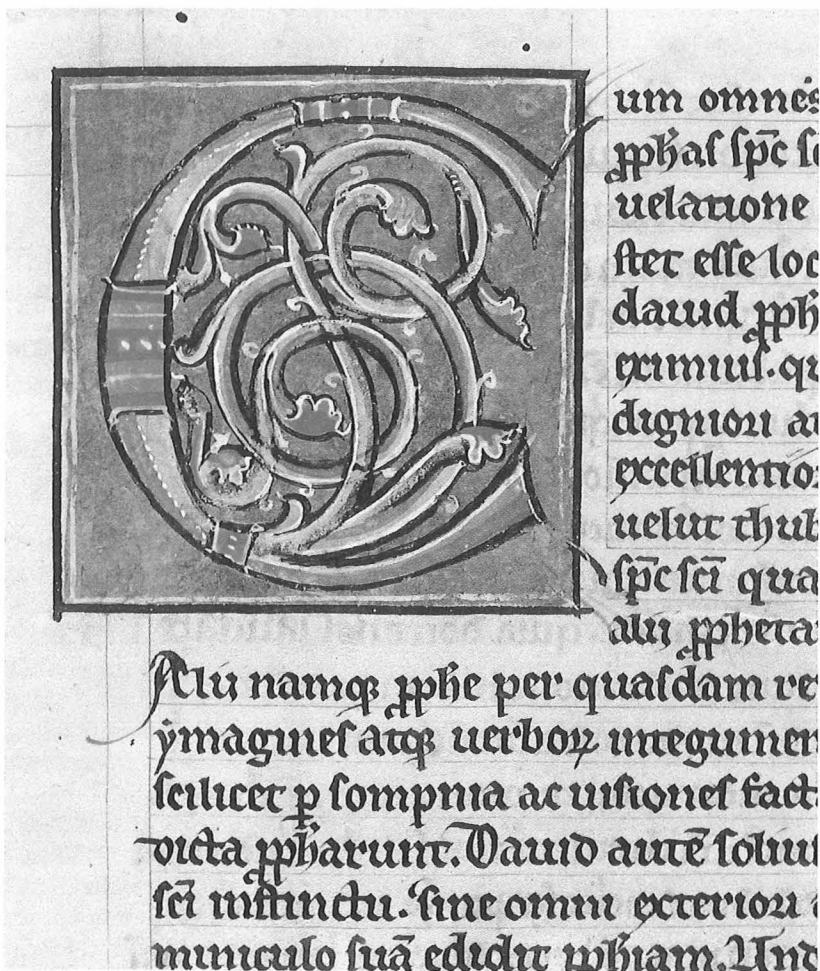 Cum omnes
ꝓph̄as sp̄c sc
uelatione
stet esse loc
dauid ꝓph
eximius. qu
digniori au
excellentio
uelut thub
sp̄c sc̄i qua
alij ꝓpheta
Alij namq; ꝓphe per quasdam re
ymagines atq; uerboꝝ integumen
scilicet ꝑ sompnia ac uisiones fact
dicta ꝓph̄arunt. Dauid autē solius
sc̄i instinctu. sine omni exteriori a
miniculo suā edidit ꝓphiam. Und